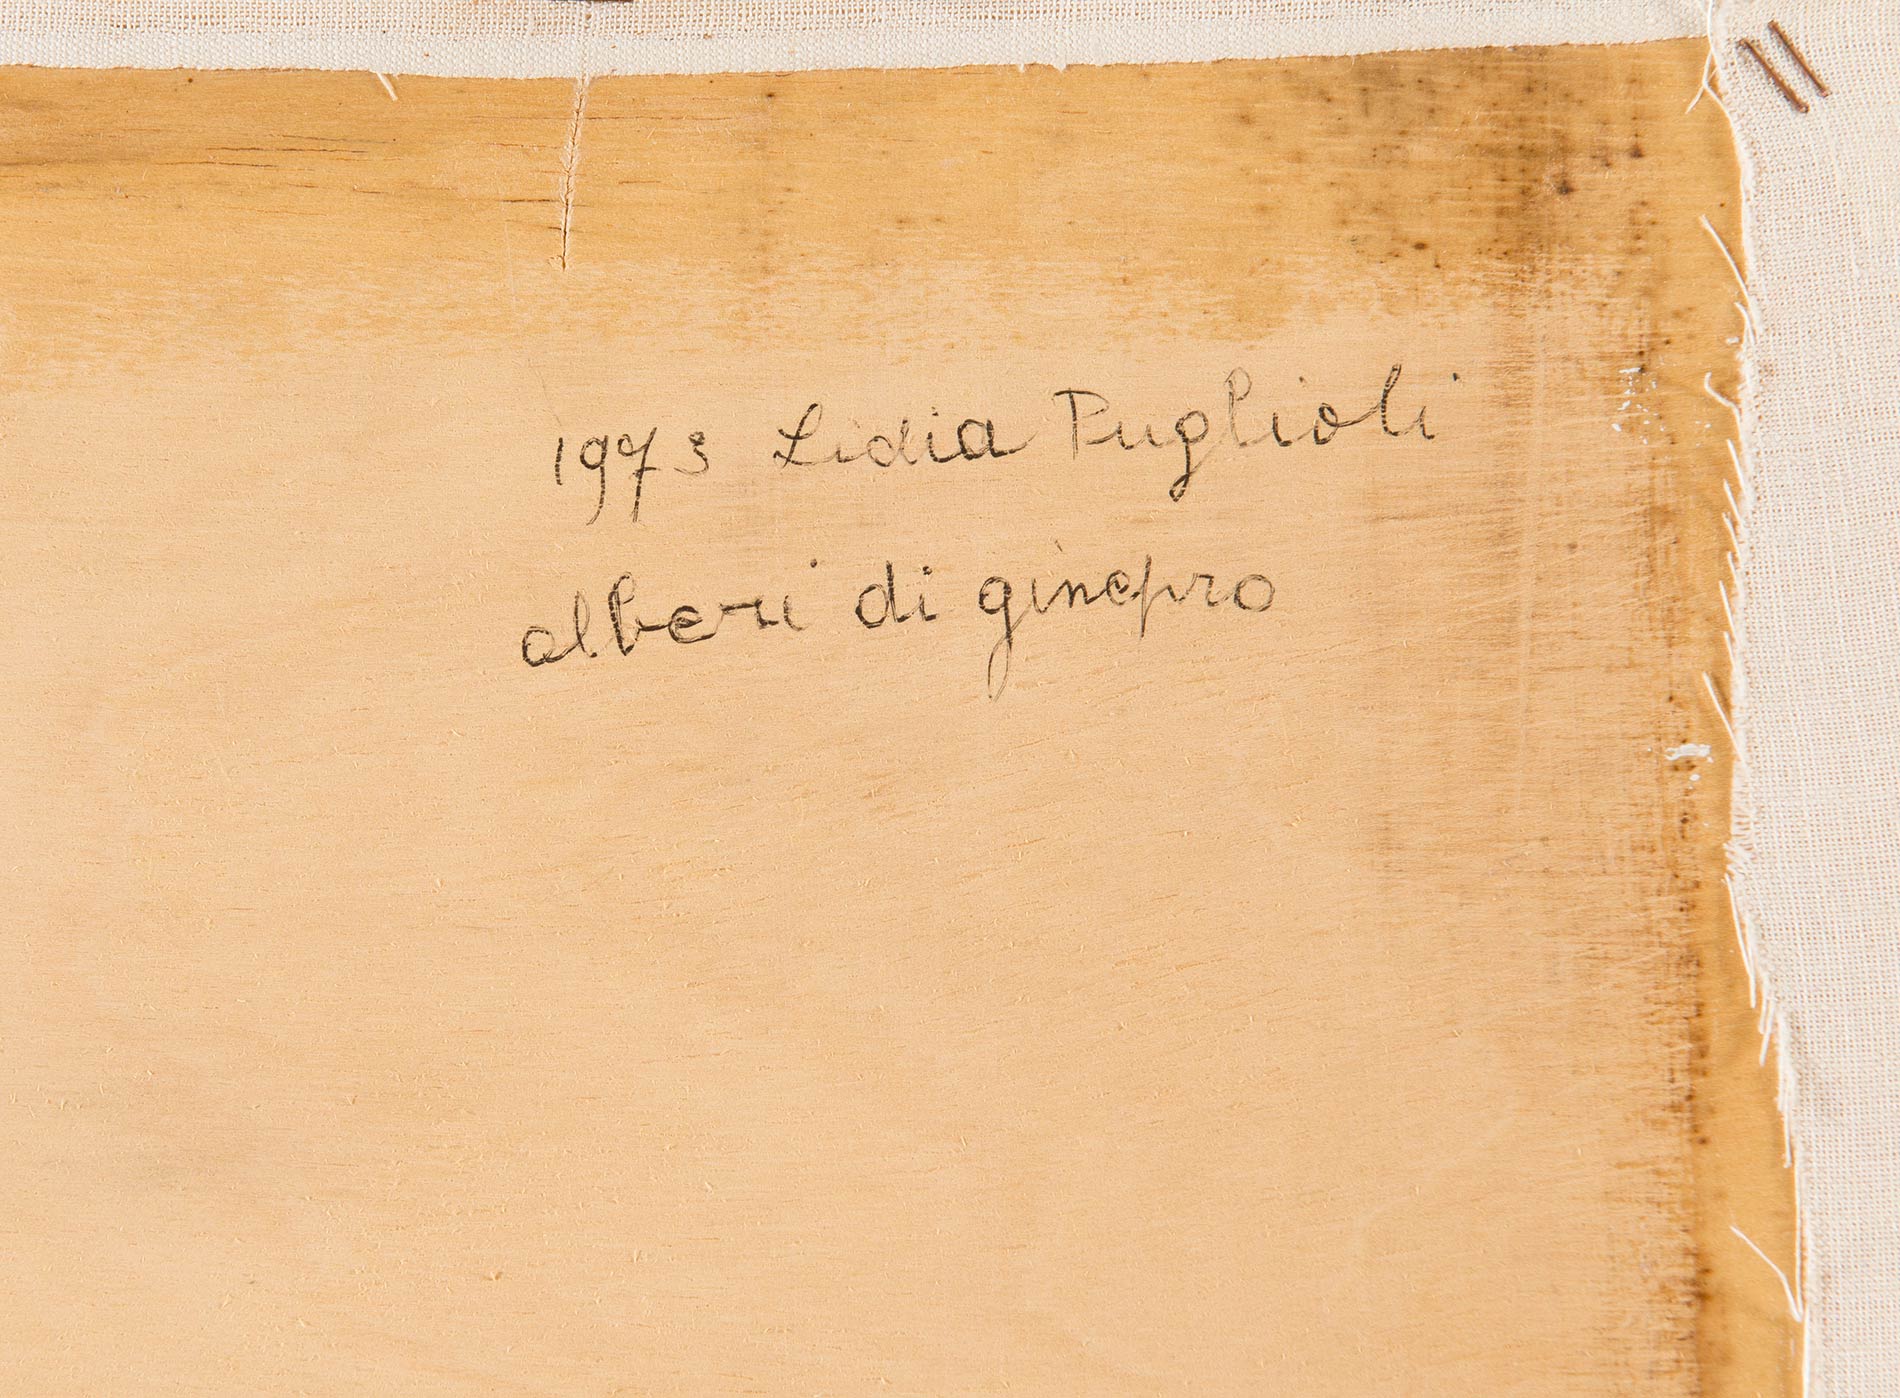 1973 Lidia Puglioli
alberi di ginepro